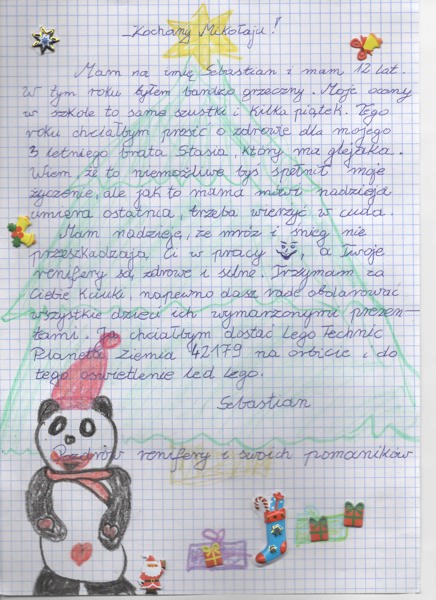 Kochany Mikołaju!
Mam na imię Sebastian i mam 12 lat.
W tym roku byłem bardzo grzeczny. Moje oceny
w szkole to same szustki i kilka piątek. Tego
roku chciałbym prosić o zdrowie dla mojego
3 letniego brata Stasia, który ma glejaka.
Wiem że to niemożliwe byś spełnił moje
życzenie, ale jak to mama mówi nadzieja
umiera ostatnia, trzeba wierzyć w cuda.
Mam nadzieję, że mróz i śnieg nie
przeszkadzają Ci w pracy, a Twoje
renifery są zdrowe i silne. Trzymam za
Ciebie kciuki, napewno dasz radę obdarować
wszystkie dzieci ich wymarzonymi prezen-
tami. Ja chciałbym dostać Lego Technic
Planeta Ziemia 42179 na orbicie i do
tego oświetlenie led lego.
Sebastian
Pozdrów renifery i swoich pomaników